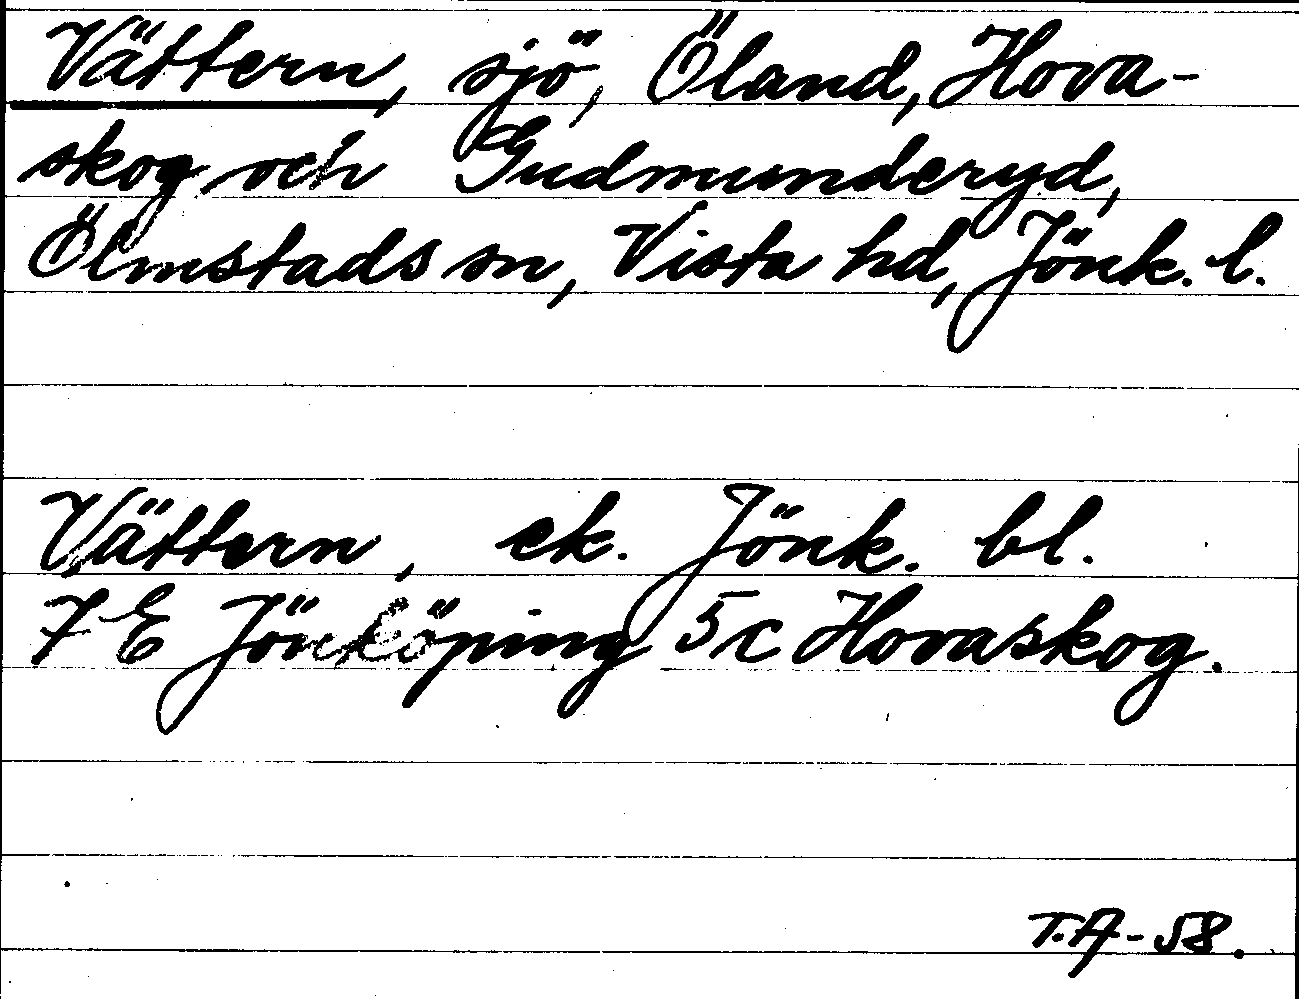 Vättern, sjö, Öland, Hova-
skog och Gudmunderyd,
Ölmstads sn, Vista hd, Jönk. l.
Vättern, ek. Jönk. bl.
7 E Jönköping 5 c Hovaskog.
T.A-58.